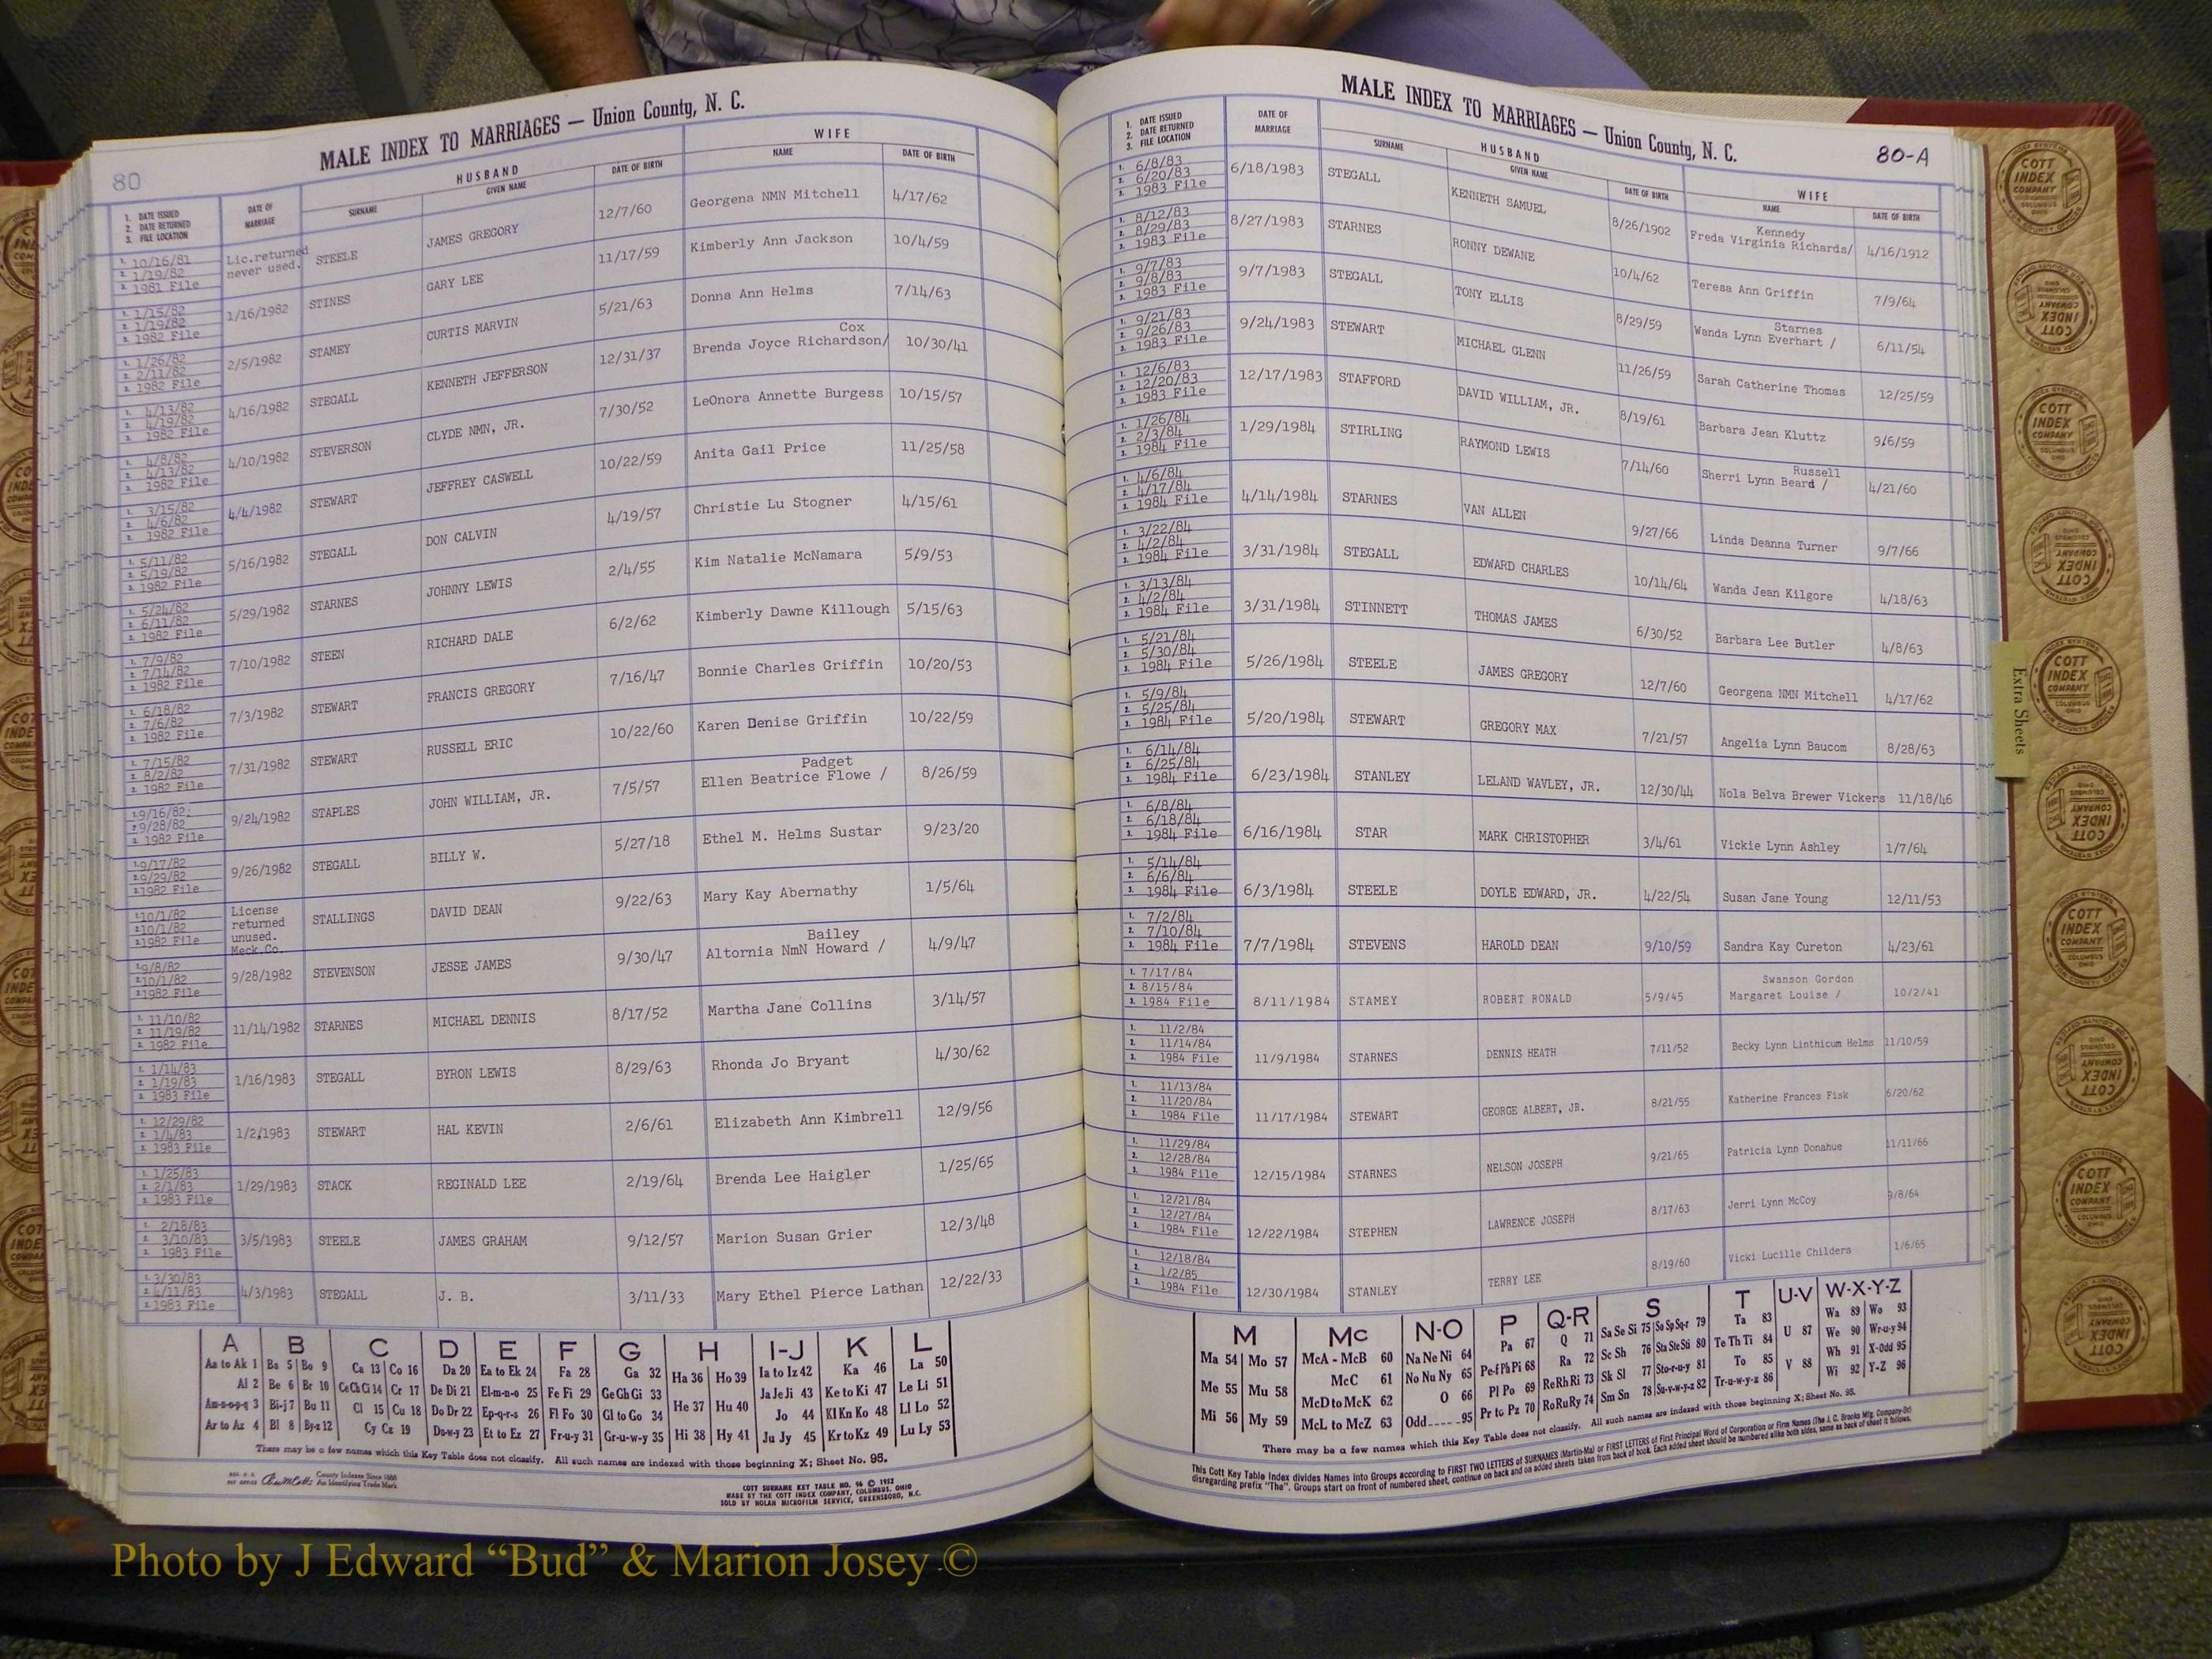 80
MALE INDEX TO MARRIAGES — Union County, N. C.
1. DATE ISSUED
2. DATE RETURNED
3. FILE LOCATION
DATE OF MARRIAGE
HUSBAND
SURNAME GIVEN NAME DATE OF BIRTH
WIFE
NAME DATE OF BIRTH
1. 10/16/81 2. 1/19/82 3. 1981 File Lic.returned never used. STEELE JAMES GREGORY 12/7/60 Georgena NMN Mitchell 4/17/62
1. 1/15/82 2. 1/19/82 3. 1982 File 1/16/1982 STINES GARY LEE 11/17/59 Kimberly Ann Jackson 10/4/59
1. 1/26/82 2. 2/11/82 3. 1982 File 2/5/1982 STAMEY CURTIS MARVIN 5/21/63 Donna Ann Helms 7/14/63
1. 4/13/82 2. 4/19/82 3. 1982 File 4/16/1982 STEGALL KENNETH JEFFERSON 12/31/37 Brenda Joyce Richardson/ Cox 10/30/41
1. 4/8/82 2. 4/13/82 3. 1982 File 4/10/1982 STEVERSON CLYDE NMN, JR. 7/30/52 LeOnora Annette Burgess 10/15/57
1. 3/15/82 2. 4/6/82 3. 1982 File 4/4/1982 STEWART JEFFREY CASWELL 10/22/59 Anita Gail Price 11/25/58
1. 5/11/82 2. 5/19/82 3. 1982 File 5/16/1982 STEGALL DON CALVIN 4/19/57 Christie Lu Stogner 4/15/61
1. 5/24/82 2. 6/11/82 3. 1982 File 5/29/1982 STARNES JOHNNY LEWIS 2/4/55 Kim Natalie McNamara 5/9/53
1. 7/9/82 2. 7/14/82 3. 1982 File 7/10/1982 STEEN RICHARD DALE 6/2/62 Kimberly Dawne Killough 5/15/63
1. 6/18/82 2. 7/6/82 3. 1982 File 7/3/1982 STEWART FRANCIS GREGORY 7/16/47 Bonnie Charles Griffin 10/20/53
1. 7/15/82 2. 8/2/82 3. 1982 File 7/31/1982 STEWART RUSSELL ERIC 10/22/60 Karen Denise Griffin 10/22/59
1. 9/16/82 2. 9/28/82 3. 1982 File 9/24/1982 STAPLES JOHN WILLIAM, JR. 7/5/57 Ellen Beatrice Flowe / Padget 8/26/59
1. 9/17/82 2. 9/29/82 3. 1982 File 9/26/1982 STEGALL BILLY W. 5/27/18 Ethel M. Helms Sustar 9/23/20
1. 10/1/82 2. 10/1/82 3. 1982 File License returned unused. Meck.Co. STALLINGS DAVID DEAN 9/22/63 Mary Kay Abernathy 1/5/64
1. 9/8/82 2. 10/1/82 3. 1982 File 9/28/1982 STEVENSON JESSE JAMES 9/30/47 Altornia NmN Howard / Bailey 4/9/47
1. 11/10/82 2. 11/19/82 3. 1982 File 11/14/1982 STARNES MICHAEL DENNIS 8/17/52 Martha Jane Collins 3/14/57
1. 1/14/83 2. 1/19/83 3. 1983 File 1/16/1983 STEGALL BYRON LEWIS 8/29/63 Rhonda Jo Bryant 4/30/62
1. 12/29/82 2. 1/4/83 3. 1983 File 1/2/1983 STEWART HAL KEVIN 2/6/61 Elizabeth Ann Kimbrell 12/9/56
1. 1/25/83 2. 2/1/83 3. 1983 File 1/29/1983 STACK REGINALD LEE 2/19/64 Brenda Lee Haigler 1/25/65
1. 2/18/83 2. 3/10/83 3. 1983 File 3/5/1983 STEELE JAMES GRAHAM 9/12/57 Marion Susan Grier 12/3/48
1. 3/30/83 2. 4/11/83 3. 1983 File 4/3/1983 STEGALL J. B. 3/11/33 Mary Ethel Pierce Lathan 12/22/33
A B C D E F G H I-J K L
Aa to Ak 1 Ba 5 Bo 9 Ca 13 Co 16 Da 20 Ea to Ek 24 Fa 28 Ga 32 Ha 36 Ho 39 Ia to Iz 42 Ka 46 La 50
Al 2 Be 6 Br 10 Ce Ch Ci 14 Cr 17 De Di 21 El-m-n-o 25 Fe Fi 29 Ge Gh Gi 33 He 37 Hu 40 Ja Je Ji 43 Ke to Ki 47 Le Li 51
Am-n-o-p-q 3 Bi-j 7 Bu 11 Cl 15 Cu 18 Do Dr 22 Ep-q-r-s 26 Fl Fo 30 Gl to Go 34 Hi 38 Hy 41 Jo 44 Kl Kn Ko 48 Ll Lo 52
Ar to Az 4 Bl 8 By-z 12 Cy Cz 19 Du-w-y 23 Et to Ez 27 Fr-u-y 31 Gr-u-w-y 35 Ju Jy 45 Kr to Kz 49 Lu Ly 53
There may be a few names which this Key Table does not classify. All such names are indexed with those beginning X; Sheet No. 95.
County Indexes Since 1888
An Identifying Trade Mark
COTT SURNAME KEY TABLE NO. 96 © 1952
MADE BY THE COTT INDEX COMPANY, COLUMBUS, OHIO
SOLD BY NOLAN MICROFILM SERVICE, GREENSBORO, N.C.
MALE INDEX TO MARRIAGES — Union County, N. C.
80-A
1. DATE ISSUED
2. DATE RETURNED
3. FILE LOCATION
DATE OF MARRIAGE
HUSBAND
SURNAME GIVEN NAME DATE OF BIRTH
WIFE
NAME DATE OF BIRTH
1. 6/8/83 2. 6/20/83 3. 1983 File 6/18/1983 STEGALL KENNETH SAMUEL 8/26/1902 Freda Virginia Richards/ Kennedy 4/16/1912
1. 8/12/83 2. 8/29/83 3. 1983 File 8/27/1983 STARNES RONNY DEWANE 10/4/62 Teresa Ann Griffin 7/9/64
1. 9/7/83 2. 9/8/83 3. 1983 File 9/7/1983 STEGALL TONY ELLIS 8/29/59 Wanda Lynn Everhart / Starnes 6/11/54
1. 9/21/83 2. 9/26/83 3. 1983 File 9/24/1983 STEWART MICHAEL GLENN 11/26/59 Sarah Catherine Thomas 12/25/59
1. 12/6/83 2. 12/20/83 3. 1983 File 12/17/1983 STAFFORD DAVID WILLIAM, JR. 8/19/61 Barbara Jean Kluttz 9/6/59
1. 1/26/84 2. 2/3/84 3. 1984 File 1/29/1984 STIRLING RAYMOND LEWIS 7/14/60 Sherri Lynn Beard / Russell 4/21/60
1. 4/6/84 2. 4/17/84 3. 1984 File 4/14/1984 STARNES VAN ALLEN 9/27/66 Linda Deanna Turner 9/7/66
1. 3/22/84 2. 4/2/84 3. 1984 File 3/31/1984 STEGALL EDWARD CHARLES 10/14/64 Wanda Jean Kilgore 4/18/63
1. 3/13/84 2. 4/2/84 3. 1984 File 3/31/1984 STINNETT THOMAS JAMES 6/30/52 Barbara Lee Butler 4/8/63
1. 5/21/84 2. 5/30/84 3. 1984 File 5/26/1984 STEELE JAMES GREGORY 12/7/60 Georgena NMN Mitchell 4/17/62
1. 5/9/84 2. 5/25/84 3. 1984 File 5/20/1984 STEWART GREGORY MAX 7/21/57 Angelia Lynn Baucom 8/28/63
1. 6/14/84 2. 6/25/84 3. 1984 File 6/23/1984 STANLEY LELAND WAVLEY, JR. 12/30/44 Nola Belva Brewer Vickers 11/18/46
1. 6/8/84 2. 6/18/84 3. 1984 File 6/16/1984 STAR MARK CHRISTOPHER 3/4/61 Vickie Lynn Ashley 1/7/64
1. 5/14/84 2. 6/6/84 3. 1984 File 6/3/1984 STEELE DOYLE EDWARD, JR. 4/22/54 Susan Jane Young 12/11/53
1. 7/2/84 2. 7/10/84 3. 1984 File 7/7/1984 STEVENS HAROLD DEAN 9/10/59 Sandra Kay Cureton 4/23/61
1. 7/17/84 2. 8/15/84 3. 1984 File 8/11/1984 STAMEY ROBERT RONALD 5/9/45 Margaret Louise / Swanson Gordon 10/2/41
1. 11/2/84 2. 11/14/84 3. 1984 File 11/9/1984 STARNES DENNIS HEATH 7/11/52 Becky Lynn Linthicum Helms 11/10/59
1. 11/13/84 2. 11/20/84 3. 1984 File 11/17/1984 STEWART GEORGE ALBERT, JR. 8/21/55 Katherine Frances Fisk 6/20/62
1. 11/29/84 2. 12/28/84 3. 1984 File 12/15/1984 STARNES NELSON JOSEPH 9/21/65 Patricia Lynn Donahue 11/11/66
1. 12/21/84 2. 12/27/84 3. 1984 File 12/22/1984 STEPHEN LAWRENCE JOSEPH 8/17/63 Jerri Lynn McCoy 9/8/64
1. 12/18/84 2. 1/2/85 3. 1984 File 12/30/1984 STANLEY TERRY LEE 8/19/60 Vicki Lucille Childers 1/6/65
M Mc N-O P Q-R S T U-V W-X-Y-Z
Ma 54 Mo 57 McA - McB 60 Na Ne Ni 64 Pa 67 Q 71 Sa Se Si 75 So Sp Sq-r 79 Ta 83 U 87 Wa 89 Wo 93
Me 55 Mu 58 McC 61 No Nu Ny 65 Pe-f Ph Pi 68 Ra 72 Sc Sh 76 Sta Ste Sti 80 Te Th Ti 84 V 88 We 90 Wr-u-y 94
Mi 56 My 59 McD to McK 62 O 66 Pl Po 69 Re Rh Ri 73 Sk Sl 77 Sto-r-u-y 81 To 85 Wh 91 X-Odd 95
McL to McZ 63 Odd 95 Pr to Pz 70 Ro Ru Ry 74 Sm Sn 78 Su-v-w-y-z 82 Tr-u-w-y-z 86 Wi 92 Y-Z 96
There may be a few names which this Key Table does not classify. All such names are indexed with those beginning X; Sheet No. 95.
This Cott Key Table Index divides Names into Groups according to FIRST TWO LETTERS of SURNAMES (Martin-Ma) or FIRST LETTERS of First Principal Word of Corporation or Firm Names (The J. C. Brooks Mfg. Company-Br)
disregarding prefix "The". Groups start on front of numbered sheet, continue on back and on added sheets taken from back of book. Each added sheet should be numbered alike both sides, same as back of sheet it follows.
Extra Sheets
COTT INDEX COMPANY COLUMBUS OHIO
Photo by J Edward “Bud” & Marion Josey ©